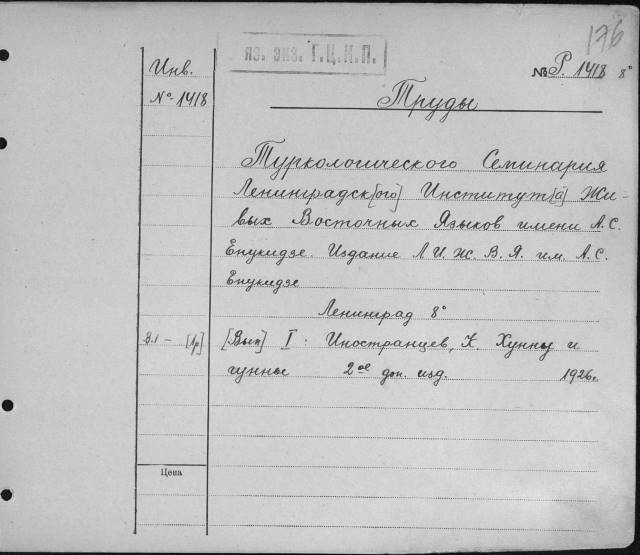 176
яз. экз. Г.Ц.К.П.
№ Р. 1418 8°
Инв.
№ 1418
Труды
Туркологического Семинария
Ленинградск[ого] Институт[а] Жи-
вых Восточных Языков имени А.С.
Енукидзе. Издание Л.И.Ж.В.Я. им. А.С.
Енукидзе
Ленинград 8°
В.1 – [1р] [Вып] I. Иностранцев, К. Хунны и
гунны 2ое доп. изд. 1926г.
Цена